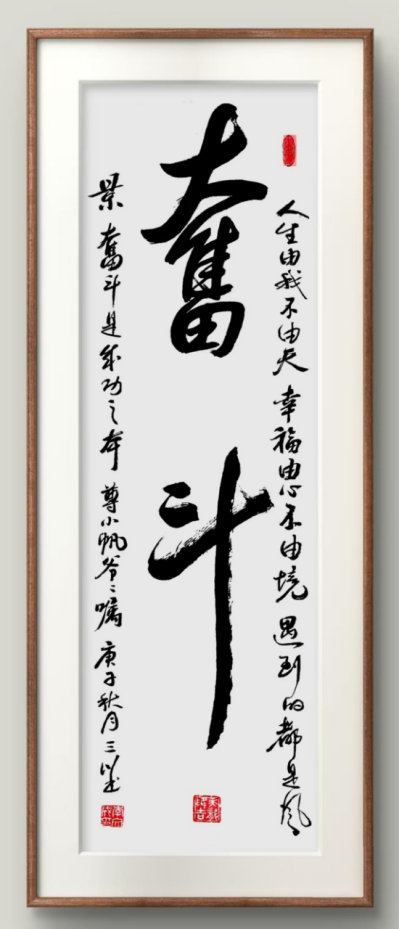 奮斗
人生由我不由天 幸福由心不由境 遇到的都是风
景 奋斗是成功之本 尊小帆爷爷嘱 庚子秋月三